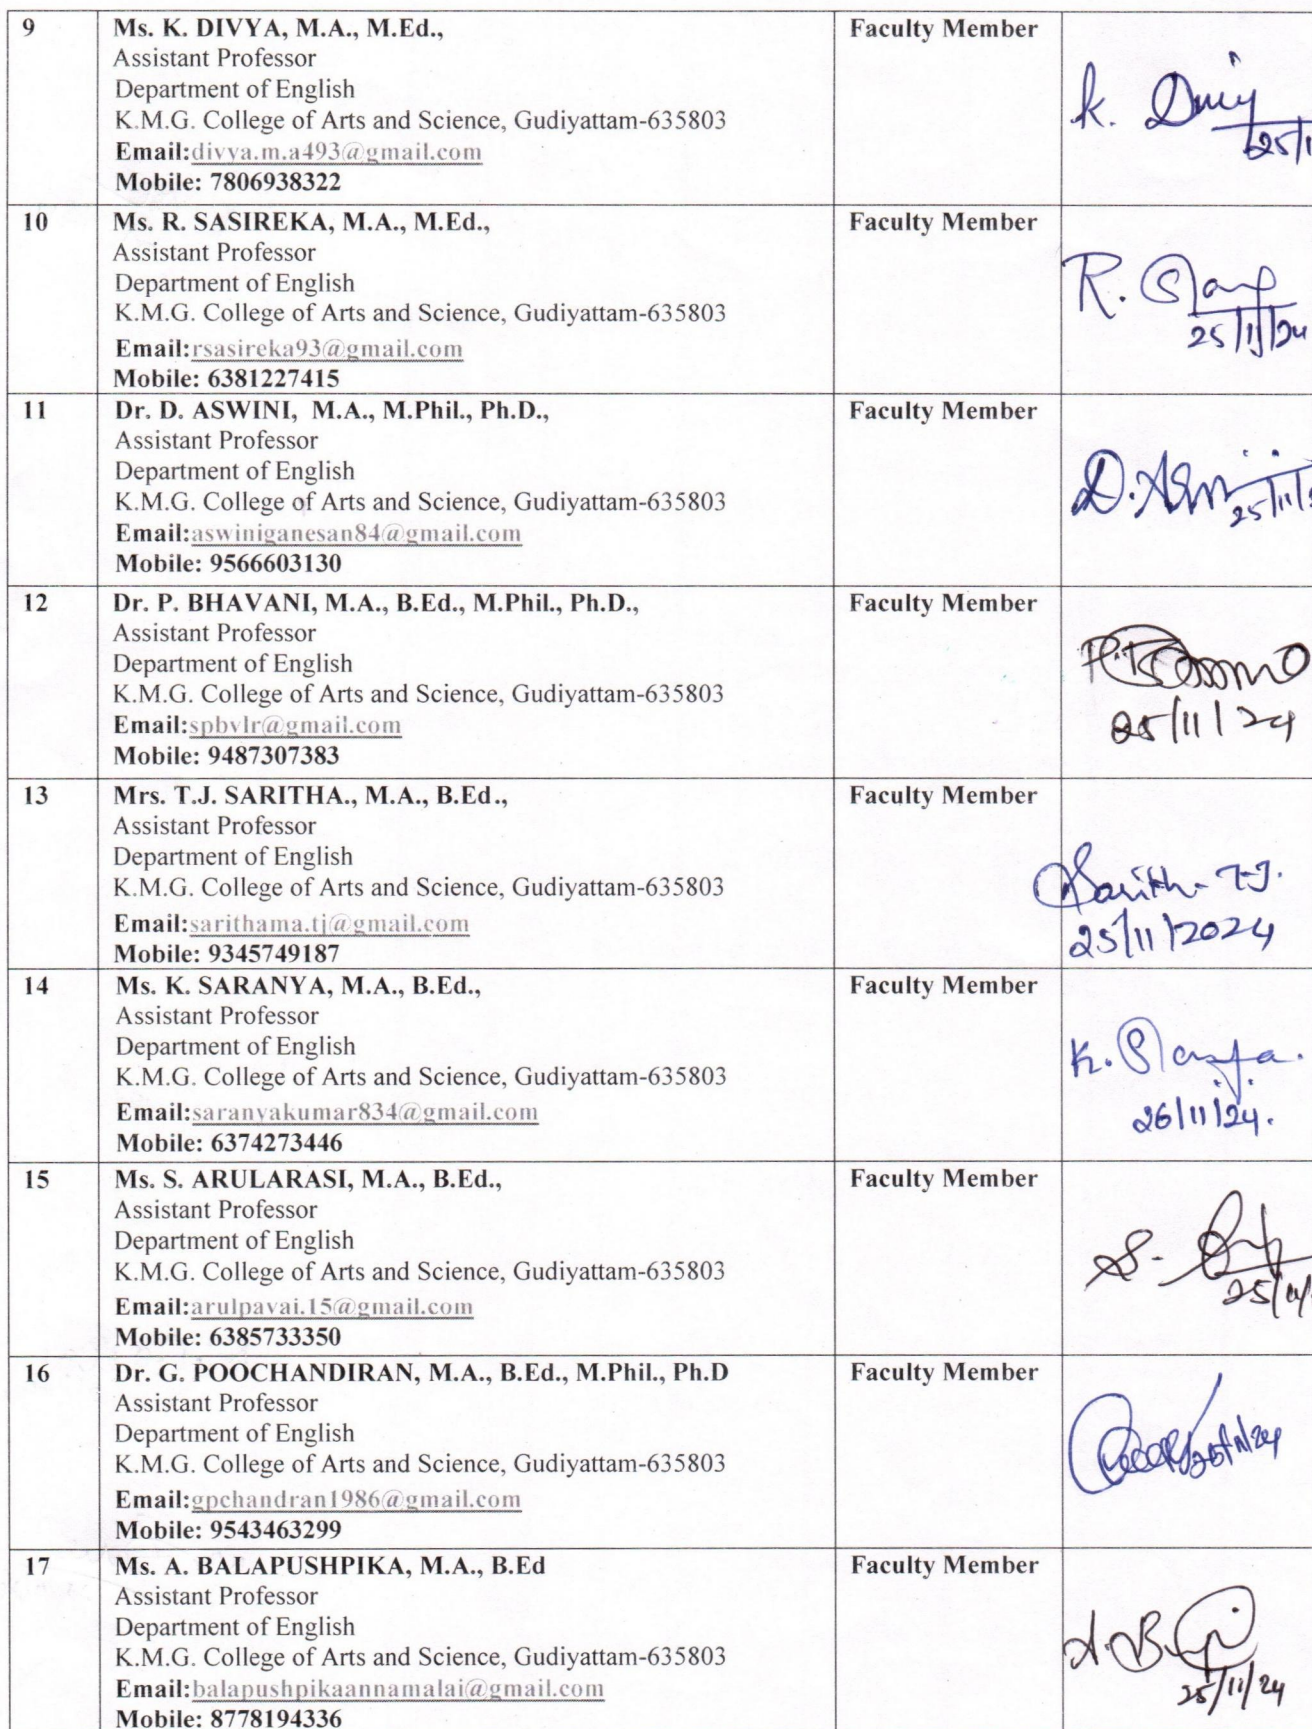 9 Ms. K. DIVYA, M.A., M.Ed., Faculty Member
Assistant Professor
Department of English
K.M.G. College of Arts and Science, Gudiyattam-635803
Email:divya.m.a493@gmail.com
Mobile: 7806938322
K.
10 Ms. R. SASIREKA, M.A., M.Ed., Faculty Member
Assistant Professor
Department of English
K.M.G. College of Arts and Science, Gudiyattam-635803
Email:rsasireka93@gmail.com
Mobile: 6381227415
R.
25/11/24
11 Dr. D. ASWINI, M.A., M.Phil., Ph.D., Faculty Member
Assistant Professor
Department of English
K.M.G. College of Arts and Science, Gudiyattam-635803
Email:aswiniganesan84@gmail.com
Mobile: 9566603130
12 Dr. P. BHAVANI, M.A., B.Ed., M.Phil., Ph.D., Faculty Member
Assistant Professor
Department of English
K.M.G. College of Arts and Science, Gudiyattam-635803
Email:spbvlr@gmail.com
Mobile: 9487307383
25/11/24
13 Mrs. T.J. SARITHA., M.A., B.Ed., Faculty Member
Assistant Professor
Department of English
K.M.G. College of Arts and Science, Gudiyattam-635803
Email:sarithama.tj@gmail.com
Mobile: 9345749187
T.J.
25/11/2024
14 Ms. K. SARANYA, M.A., B.Ed., Faculty Member
Assistant Professor
Department of English
K.M.G. College of Arts and Science, Gudiyattam-635803
Email:saranyakumar834@gmail.com
Mobile: 6374273446
K.
26/11/24.
15 Ms. S. ARULARASI, M.A., B.Ed., Faculty Member
Assistant Professor
Department of English
K.M.G. College of Arts and Science, Gudiyattam-635803
Email:arulpavai.15@gmail.com
Mobile: 6385733350
16 Dr. G. POOCHANDIRAN, M.A., B.Ed., M.Phil., Ph.D Faculty Member
Assistant Professor
Department of English
K.M.G. College of Arts and Science, Gudiyattam-635803
Email:gpchandran1986@gmail.com
Mobile: 9543463299
17 Ms. A. BALAPUSHPIKA, M.A., B.Ed Faculty Member
Assistant Professor
Department of English
K.M.G. College of Arts and Science, Gudiyattam-635803
Email:balapushpikaannamalai@gmail.com
Mobile: 8778194336
25/11/24